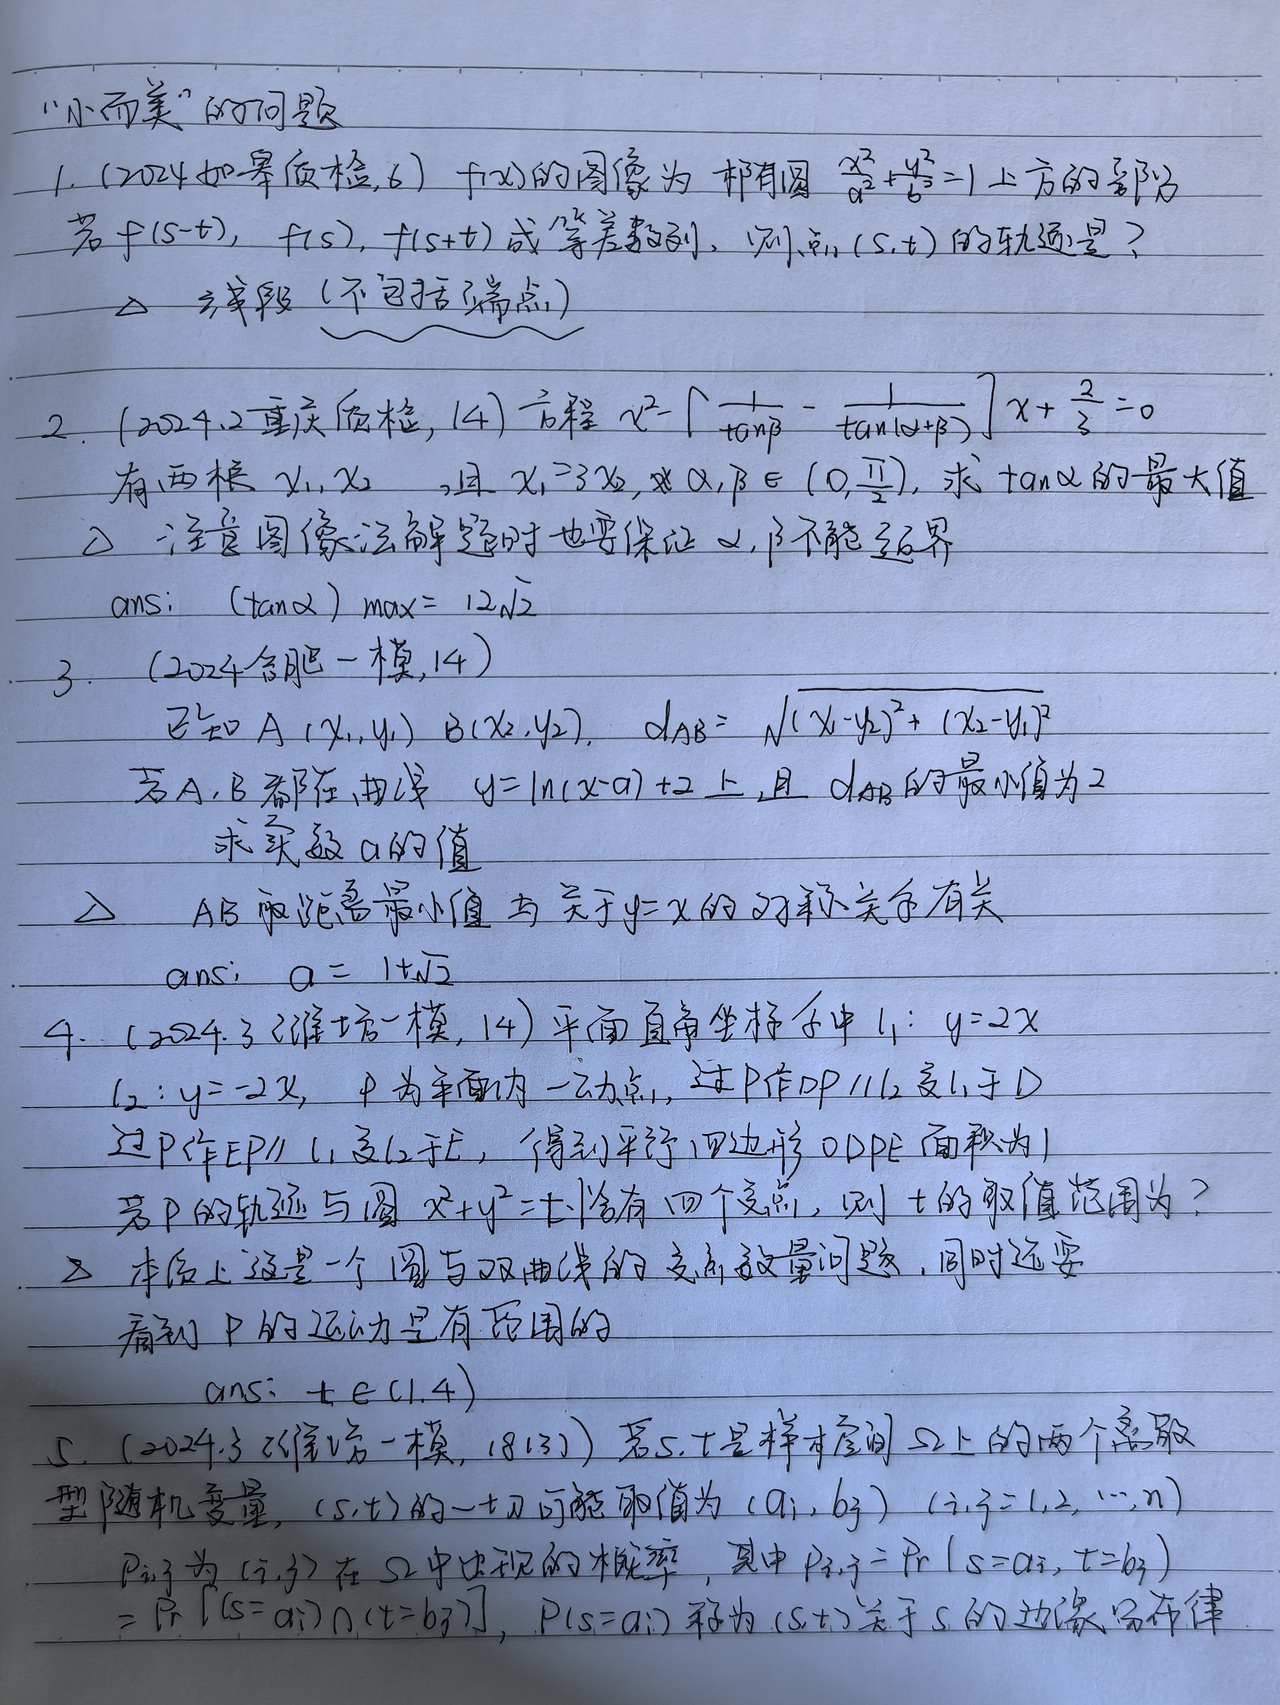 “小而美”的问题
1. (2024如皋质检,6) f(x)的图像为 椭圆 x²/a²+y²/b²=1 上方的部分
若 f(s-t), f(s), f(s+t) 成等差数列, 则点(s,t)的轨迹是?
△ 线段 (不包括端点)
2. (2024.2重庆质检, 14) 方程 x²-[1/tanβ - 1/tan(α+β)]x+2/3=0
有两根 x₁,x₂ ,且 x₁=3x₂, α,β∈(0,π/2), 求 tanα的最大值
△ 注意图像法解题时也要保证 α,β不能越界
ans: (tanα) max= 12√2
3. (2024合肥一模,14)
已知 A(x₁,y₁) B(x₂,y₂), dAB=√(x₁-y₂)²+(x₂-y₁)²
若A,B都在曲线 y=ln(x-a)+2上,且 dAB的最小值为2
求实数a的值
△ AB 取距离最小值 与 关于y=x的对称关系有关
ans: a= 1+√2
4. (2024.3 潍坊一模, 14) 平面直角坐标系中 l₁: y=2x
l₂: y=-2x, P为平面内一动点, 过P作DP//l₂交l₁于D
过P作EP//l₁交l₂于E, 得到平行四边形ODPE面积为1
若P的轨迹与圆 x²+y²=t恰有四个交点, 则 t的取值范围为?
△ 本质上这是一个圆与双曲线的交点数量问题,同时还要
看到 P的运动是有范围的
ans: t∈(1,4)
5. (2024.3 潍坊一模, 18(3)) 若s,t是样本空间Ω上的两个离散
型随机变量, (s,t)的一切可能取值为 (ai, bj) (i,j=1,2,…,n)
Pi,j为(i,j)在Ω中出现的概率, 其中 Pi,j=Pr(s=ai, t=bj)
=Pr[(s=ai)∩(t=bj)], P(s=ai)称为(s,t)关于s的边缘分布律